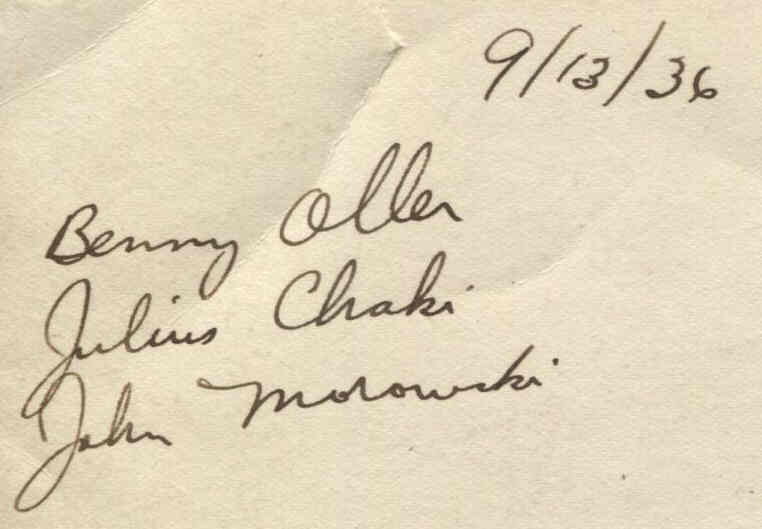 9/13/36
Benny Oller
Julius Chaki
John Morowski